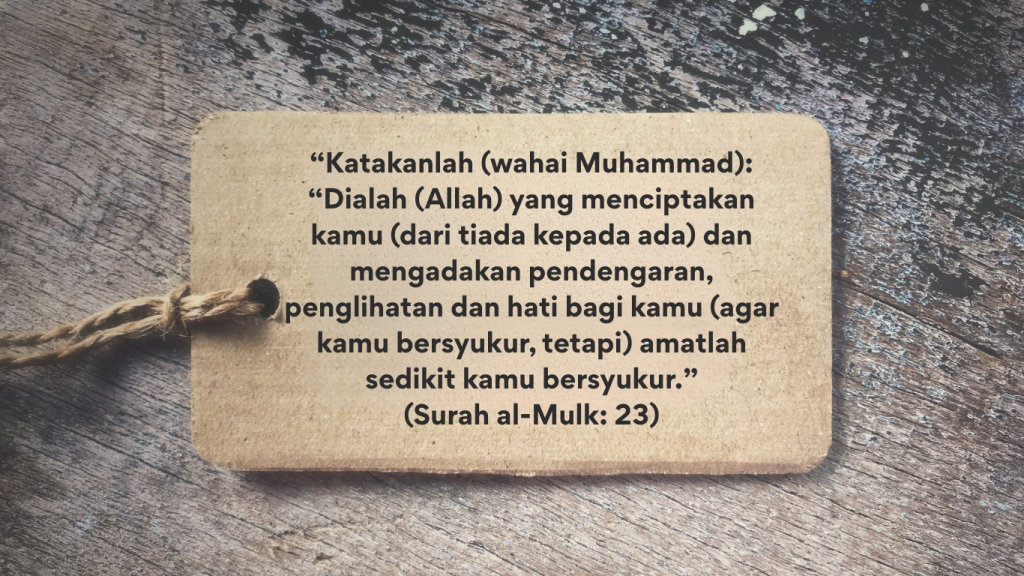 “Katakanlah (wahai Muhammad):
“Dialah (Allah) yang menciptakan
kamu (dari tiada kepada ada) dan
mengadakan pendengaran,
penglihatan dan hati bagi kamu (agar
kamu bersyukur, tetapi) amatlah
sedikit kamu bersyukur.”
(Surah al-Mulk: 23)